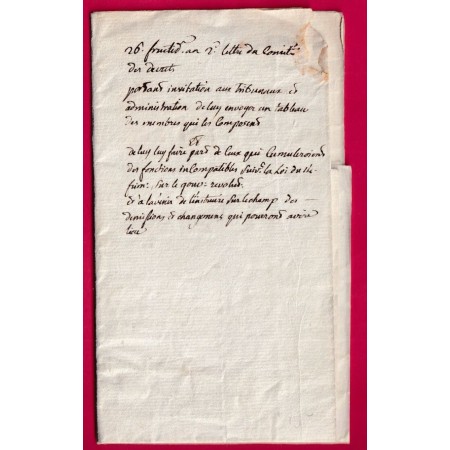 26. fructid. an 2e. lettre du Comité
des decrets
portant invitation aux tribunaux &
administration de luy envoyer un tableau
des membres qui les Composent
et
de luy faire part de Ceux qui Cumuleroient
des fonctions inCompatibles suivt. la Loi du 14
frim. sur le gouvt. revolut.
& à l'avenir de l'instruire sur le champ des
demissions & changemens qui pourront avoir
lieu